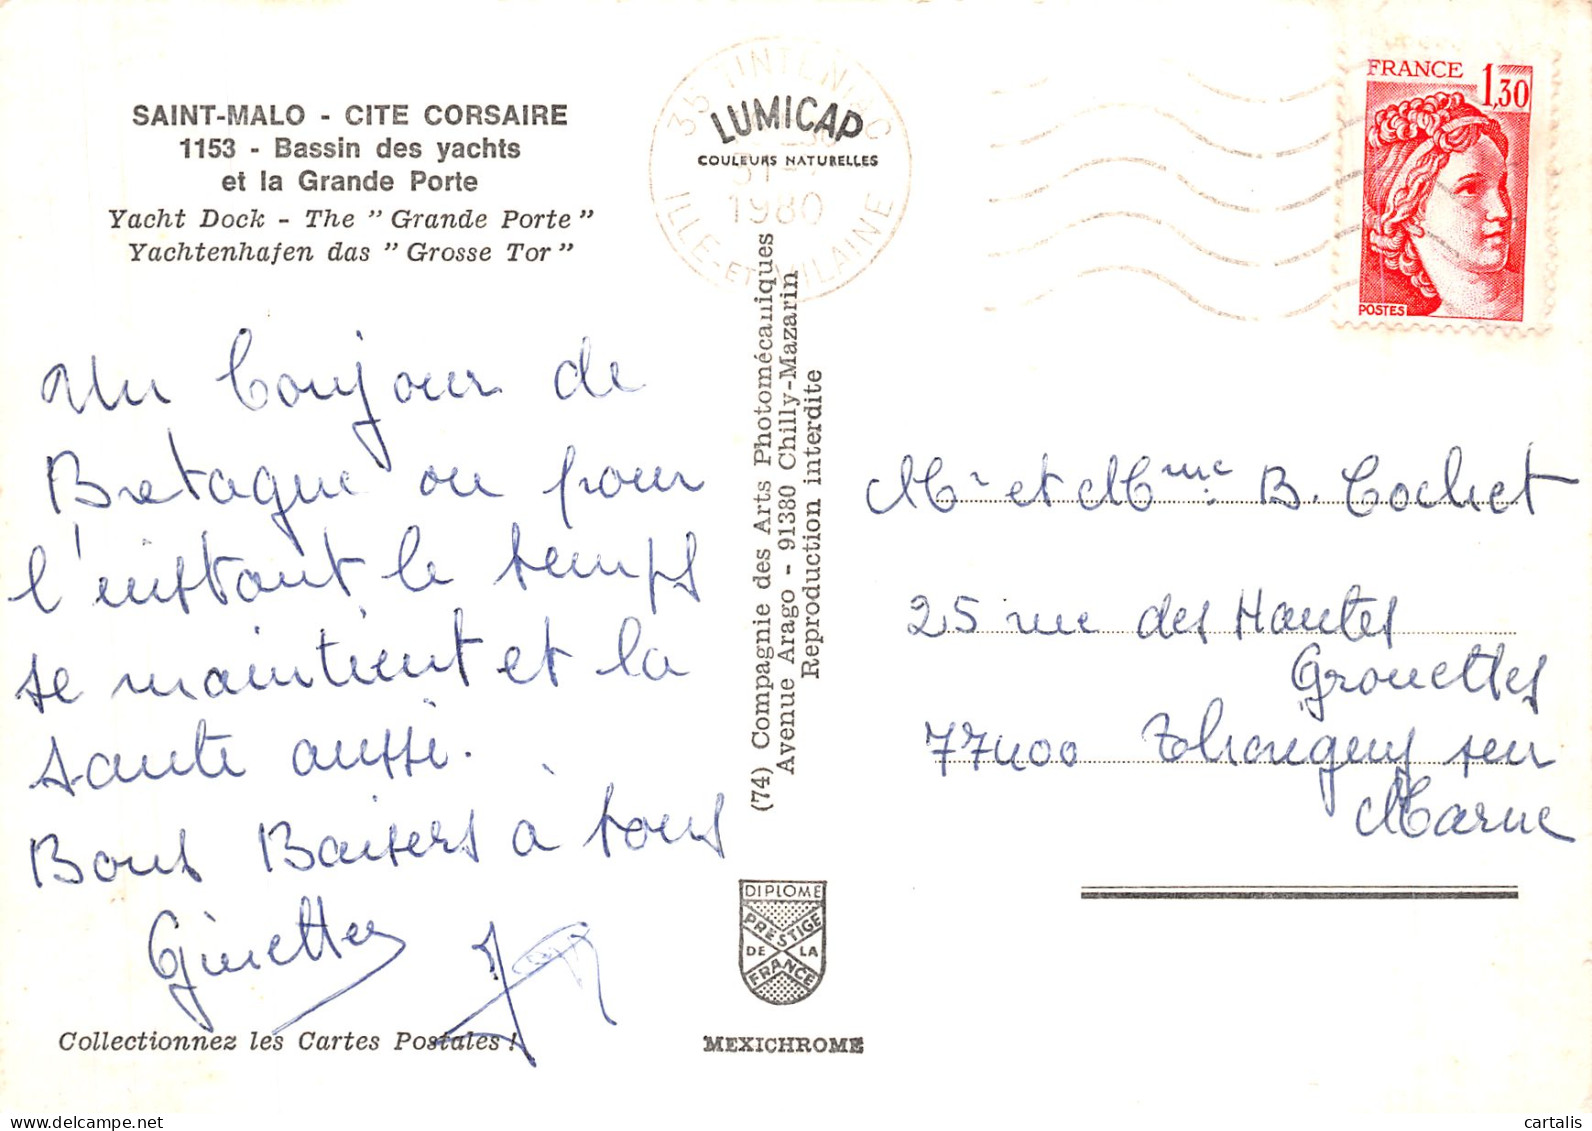 SAINT-MALO - CITE CORSAIRE
1153 - Bassin des yachts
et la Grande Porte
Yacht Dock - The " Grande Porte "
Yachtenhafen das " Grosse Tor "
Un bonjour de
Bretagne ou pour
l'instant le temps
se maintient et la
santé aussi.
Bons Baisers à tous
Ginette
Collectionnez les Cartes Postales !
LUMICAP
COULEURS NATURELLES
1980
ILLE-ET-VILAINE
(74) Compagnie des Arts Photomécaniques
Avenue Arago - 91380 Chilly-Mazarin
Reproduction interdite
DIPLOME
PRESTIGE
DE LA
FRANCE
MEXICHROME
FRANCE 1,30
POSTES
Mr et Mme B. Cochet
25 rue des Hautes
Grouettes
77400 Thorigny sur
Marne
cartalis